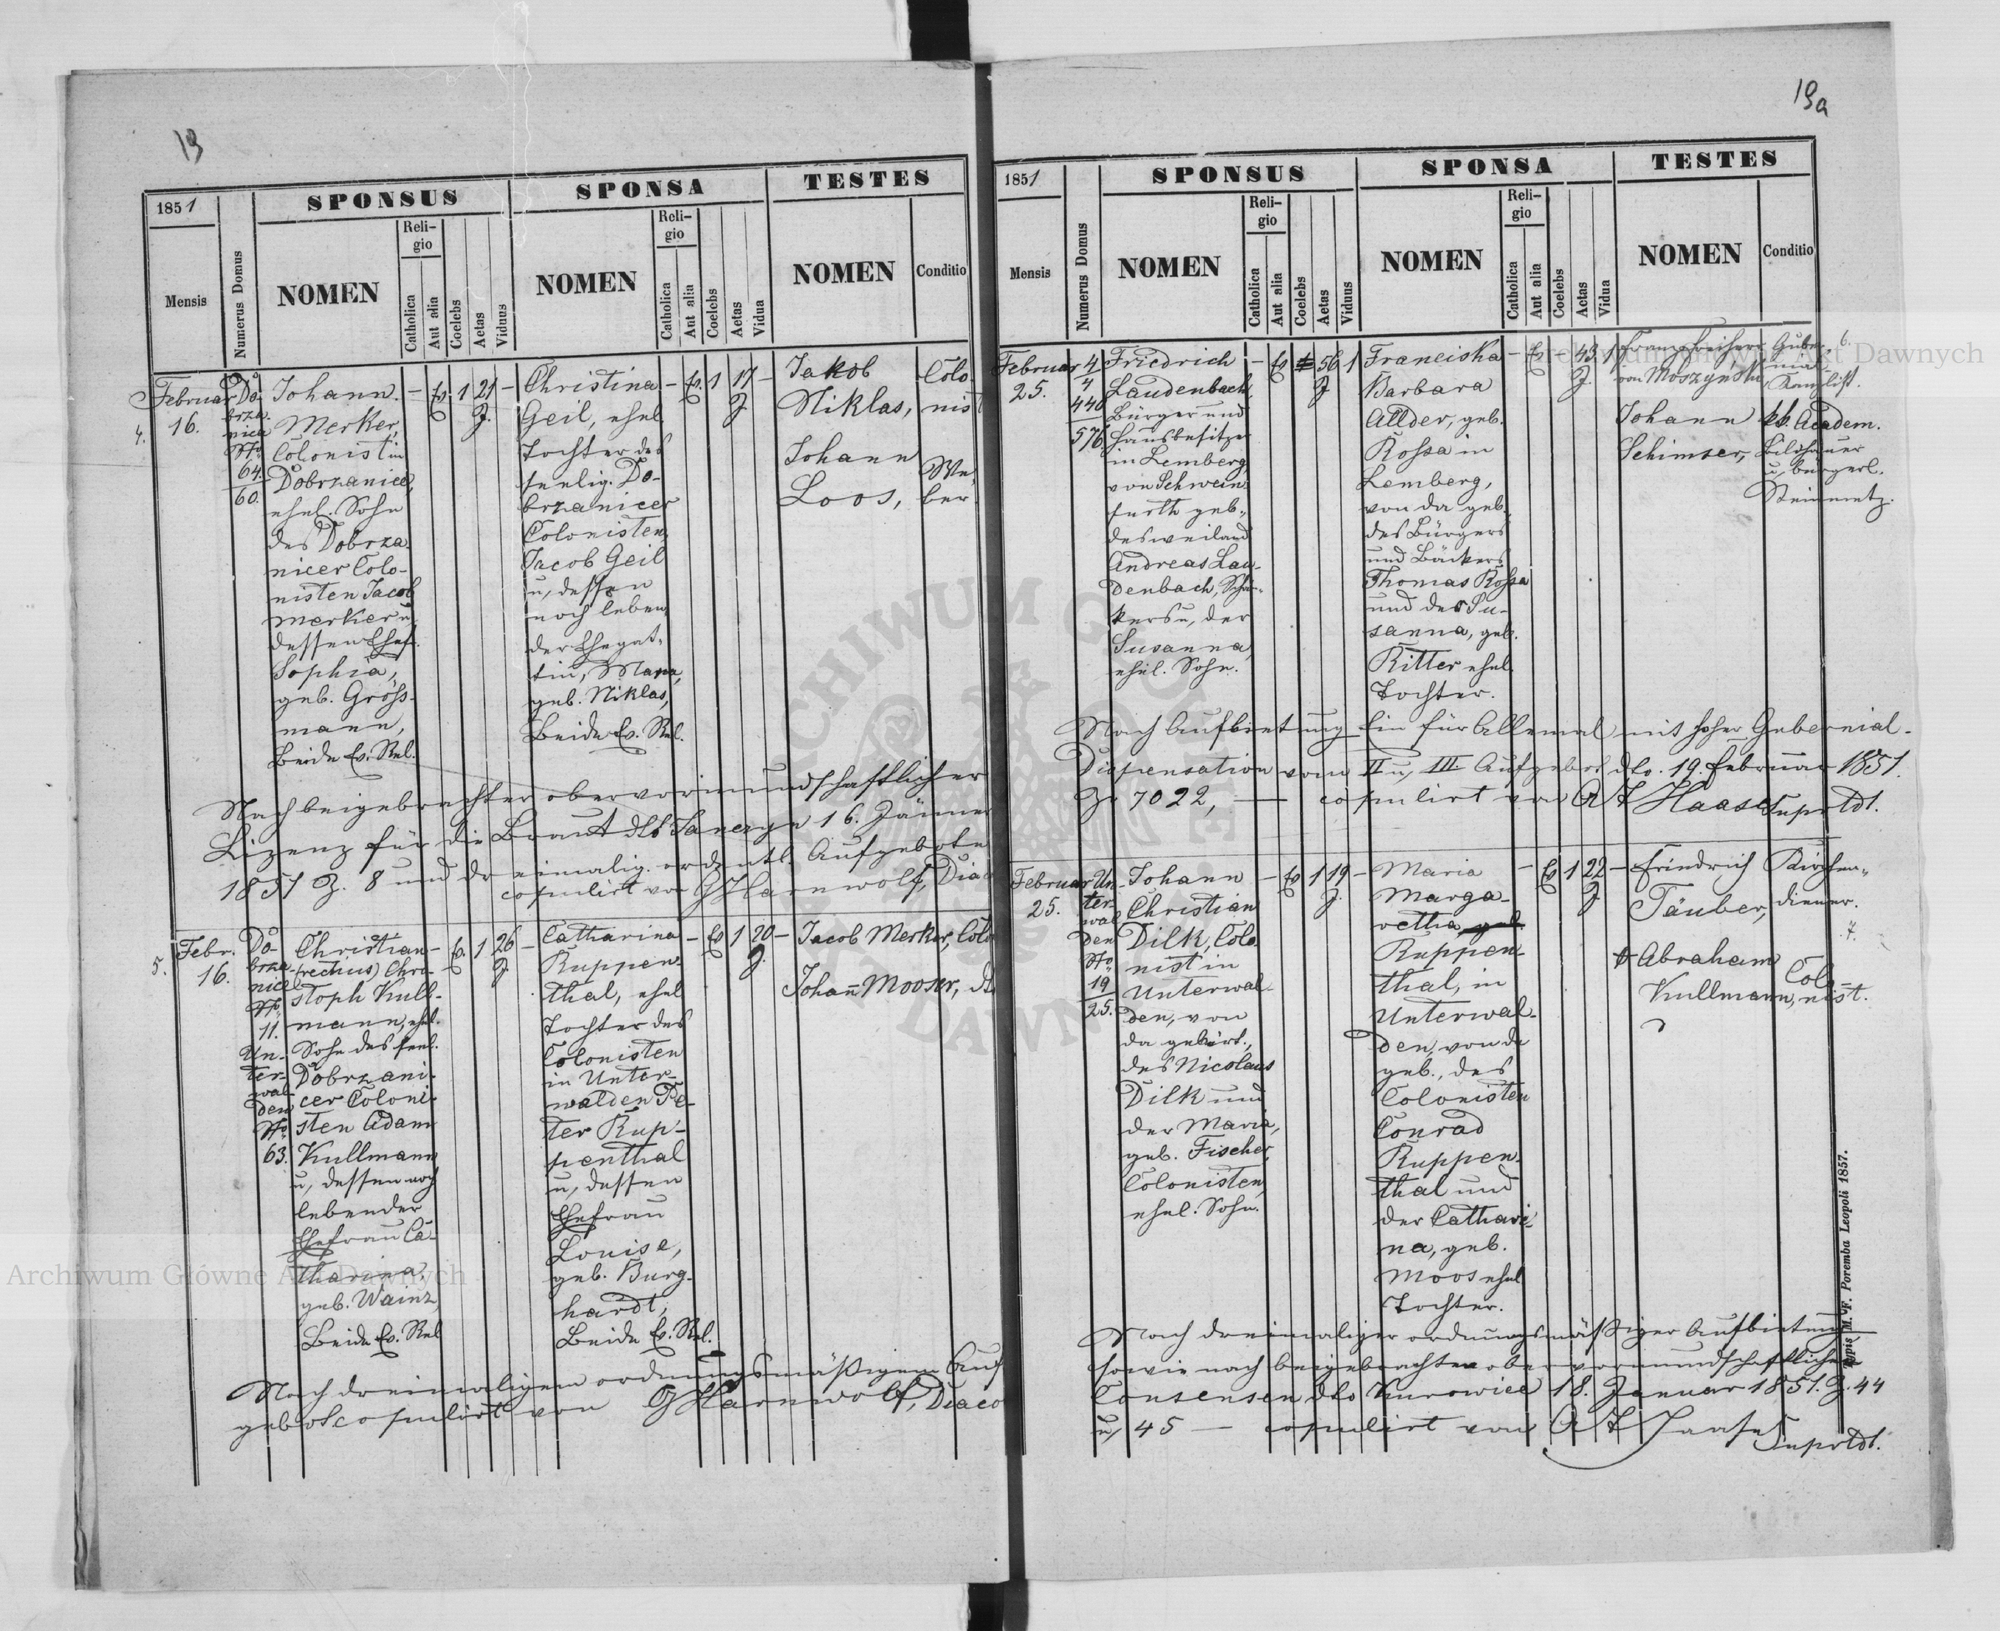 19
1851
SPONSUS
SPONSA
TESTES
Mensis
Numerus Domus
NOMEN
Reli-
gio
Catholica
Aut alia
Coelebs
Aetas
Viduus
NOMEN
Reli-
gio
Catholica
Aut alia
Coelebs
Aetas
Vidua
NOMEN
Conditio
4.
Februar
16.
Do-
brza-
nice
No
64.
60.
Johann
Merker,
Colonist in
Dobrzanice,
ehel. Sohn
des Dobrza-
nicer Colo-
nisten Jacob
Merker u.
dessen Ehef.
Sophia,
geb. Gross-
mann,
Beide Ev. Rel.
– Ev. 1 21 –
J.
Christina
Geil, ehel.
Tochter des
seelig. Do-
brzanicer
Colonisten,
Jacob Geil
u, dessen
noch leben
der Ehegat-
tin, Maria,
geb. Niklas,
Beide Ev. Rel.
– Ev. 1 17 –
J.
Jakob
Niklas,
Johann
Loos,
Colo
nist
We-
ber
Nach beigebrachter obervormundschaftlicher
Lizenz für die Braut dto Janczyn 16. Jänner
1851 Z. 8 und dreimalig. ordentl. Aufgebote
copulirt von G Harnwolf, Diac
5.
Febr.
16.
Do-
brza-
nice
No
11.
Un-
ter-
wal-
den
No
63.
Christian
(rectius) Chri-
stoph Kull-
mann, ehel.
Sohn des seel.
Dobrzani-
cer Coloni-
sten Adam
Kullmann
u, dessen noch
lebender
Ehefrau Ca-
tharina,
geb. Wainz,
Beide Ev. Rel
– Ev. 1 26 –
J.
Catharina
Ruppen-
thal, ehel
Tochter des
Colonisten
in Unter-
walden Pe-
ter Rup-
penthal
u, dessen
Ehefrau
Louise,
geb. Burg-
hardt,
Beide Ev. Rel.
– Ev 1 20 –
J.
Jacob Merker, Colo
Johan̄ Mooser,
Nach dreimaligem ordnungsmäßigem Auf
gebot copulirt von G Harnwolf, Diaco
19a
1851
SPONSUS
SPONSA
TESTES
Mensis
Numerus Domus
NOMEN
Reli-
gio
Catholica
Aut alia
Coelebs
Aetas
Viduus
NOMEN
Reli-
gio
Catholica
Aut alia
Coelebs
Aetas
Vidua
NOMEN
Conditio
Februar
25.
4/4
440
576
Friedrich
Laudenbach,
Bürger und
Hausbesitzer
in Lemberg,
von Schwein-
furth geb.,
des weiland
Andreas Lau-
denbach,
kers u, der
Susanna,
ehel. Sohn.
– Ev 56 1
J
Franciska
Barbara
Allder, geb.
Rossa in
Lemberg,
von da geb.,
des Bürgers
und Bäckers
Thomas Rossa
und der Su-
sanna, geb.
Ritter ehel.
Tochter.
– Ev – 43 1
J.
Franz Freiherr
von Moszyński
Guber-
nial-
Kanzlist.
6.
Johann
Schimser,
kk. Academ.
Bildhauer
u, bürgerl.
Steinmetz.
Nach Aufbietung Ein für Allemal mit hoher Gubernial-
Dispensation vom II u, III Aufgebot dto. 19. Februar 1851.
Z. 7022, — copulirt von A T Haase Suprtdt.
Februar
25.
Un-
ter-
wal
den
No
19
25.
Johann
Christian
Dilk, Colo-
nist in
Unterwal-
den, von
da gebürt.,
des Nicolaus
Dilk und
der Maria,
geb. Fischer,
Colonisten,
ehel. Sohn.
– Ev 1 19 –
J.
Maria
Marga-
retha geb
Ruppen-
thal, in
Unterwal-
den, von da
geb., des
Colonisten
Conrad
Ruppen-
thal und
der Cathari-
na, geb.
Moos ehel
Tochter.
– Ev 1 22 –
J.
Friedrich
Täuber,
Kirchen-
diener.
7.
Abraham
Kullmann,
Colo-
nist.
Nach dreimaliger ordnungsmäßiger Aufbietung
sowie nach beigebrachten obervormundschaftlichen
Consensen dto Kurowice 18. Januar 1851. Z. 44
u, 45 — copulirt von A T Haase Suprtdt.
Typis M. F. Poremba Leopoli 1857.
Archiwum Główne Akt Dawnych
Archiwum Główne Akt Dawnych
ARCHIWUM GŁÓWNE AKT DAWNYCH